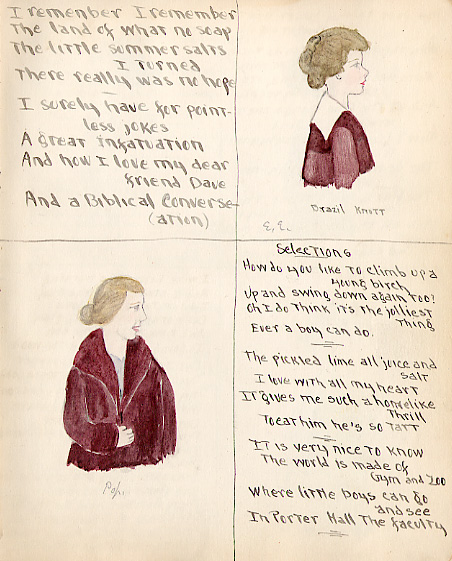 I remember I remember
The land of what no soap
The little summer salts
I Turned
There really was no hope
I surely have for point-
less jokes
A great Infatuation
And how I love my dear
friend Dave
And a Biblical Converse-
(ation)
Drazil Knott
E, E.
Pop.
Selections
How do you like to climb up a
young birch
Up and swing down again too?
Oh I do think it's the jolliest
Thing
Ever a boy can do.
The pickled lime all juice and
salt
I love with all my heart
It gives me such a homelike
Thrill
To eat him he's so Tart
It is very nice to know
The world is made of
Gym and Zoo
Where little boys can go
and see
In Porter Hall The faculty